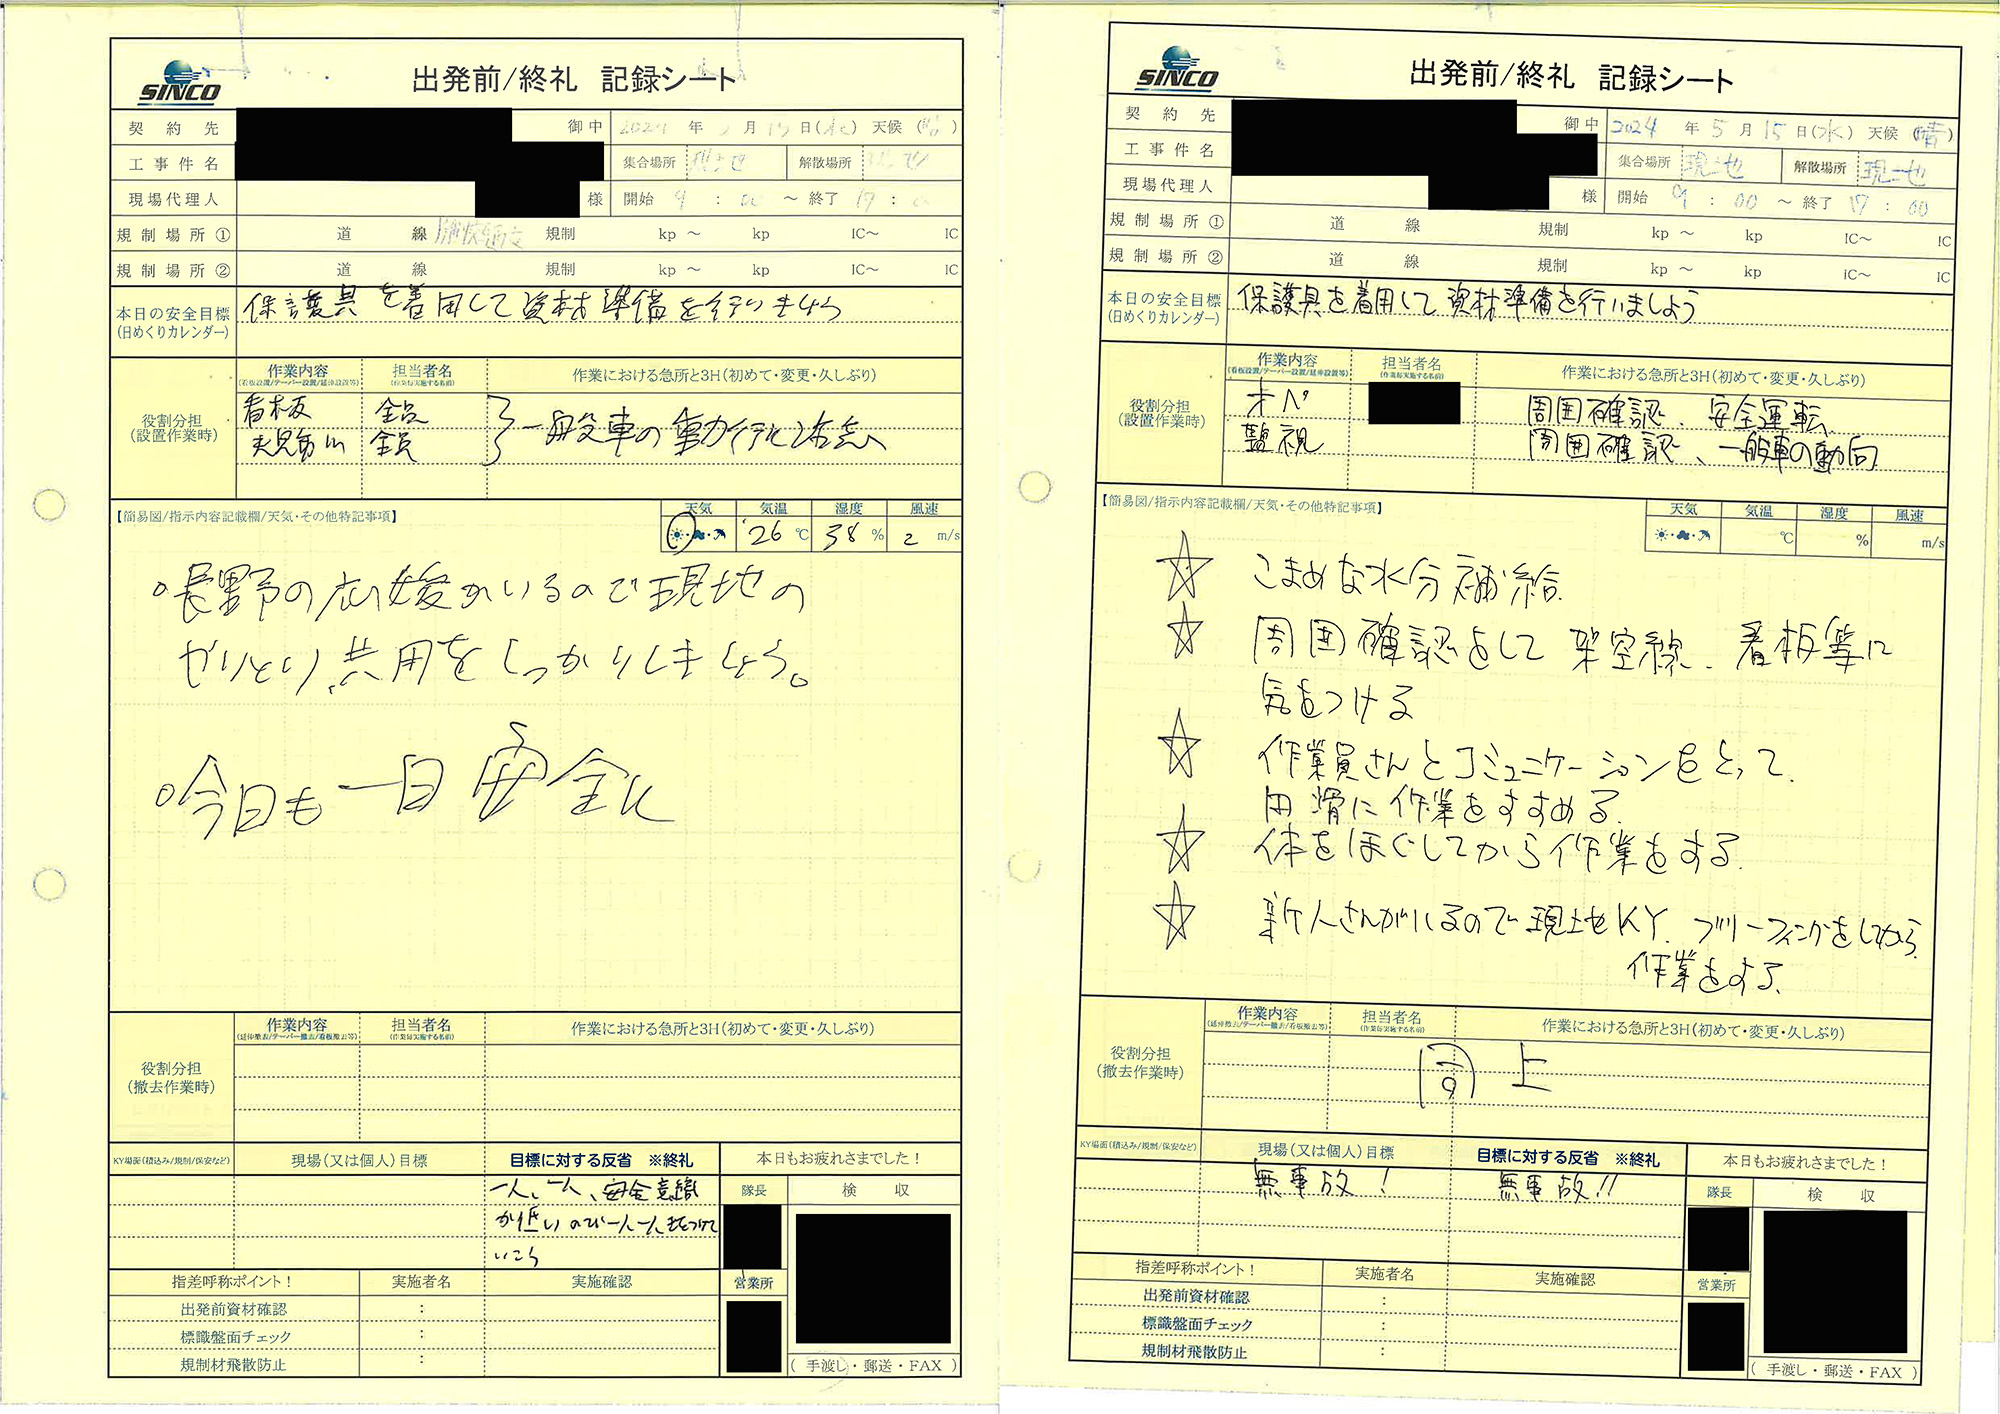 SINCO
出発前/終礼 記録シート
契約先 御中 2024 年 5 月 15 日(水) 天候 (晴)
工事件名 集合場所 現地 解散場所 現地
現場代理人 様 開始 9 : 00 ～ 終了 17 : 00
規制場所① 道 線 規制 kp ～ kp IC～ IC
規制場所② 道 線 規制 kp ～ kp IC～ IC
本日の安全目標 保護具を着用して資材準備を行いましょう
(日めくりカレンダー)
作業内容 担当者名 作業における急所と3H(初めて・変更・久しぶり)
(看板設置/テーパー設置/延伸設置等) (作業毎実施する名前)
役割分担
(設置作業時)
看板 全員 一般車の動
全員
【簡易図/指示内容記載欄/天気・その他特記事項】
天気 気温 湿度 風速
26 ℃ 38 % 2 m/s
○長野の応援がいるので現地の
やりとり、共用をしっかりしましょう。
○今日も一日安全に
作業内容 担当者名 作業における急所と3H(初めて・変更・久しぶり)
(延伸撤去/テーパー撤去/看板撤去等) (作業毎実施する名前)
役割分担
(撤去作業時)
KY場面(積込み/規制/保安など) 現場(又は個人)目標 目標に対する反省 ※終礼 本日もお疲れさまでした!
一人、一人、安全意識
が低いので一人一人気をつけて
いこう
隊長 検収
営業所
指差呼称ポイント! 実施者名 実施確認
出発前資材確認 :
標識盤面チェック :
規制材飛散防止 :
(手渡し・郵送・FAX)
SINCO
出発前/終礼 記録シート
契約先 御中 2024 年 5 月 15 日(水) 天候 (晴)
工事件名 集合場所 現地 解散場所 現地
現場代理人 様 開始 9 : 00 ～ 終了 17 : 00
規制場所① 道 線 規制 kp ～ kp IC～ IC
規制場所② 道 線 規制 kp ～ kp IC～ IC
本日の安全目標 保護具を着用して資材準備を行いましょう
(日めくりカレンダー)
作業内容 担当者名 作業における急所と3H(初めて・変更・久しぶり)
(看板設置/テーパー設置/延伸設置等) (作業毎実施する名前)
役割分担
(設置作業時)
オペ 周囲確認、安全運転
監視 周囲確認、一般車の動向
【簡易図/指示内容記載欄/天気・その他特記事項】
天気 気温 湿度 風速
℃ % m/s
☆ こまめな水分補給
☆ 周囲確認をして架空線、看板等に
気をつける
☆ 作業員さんとコミュニケーションをとって、
円滑に作業をすすめる
☆ 体をほぐしてから作業をする
☆ 新人さんがいるので現地KY、ブリーフィングをしてから
作業をする
作業内容 担当者名 作業における急所と3H(初めて・変更・久しぶり)
(延伸撤去/テーパー撤去/看板撤去等) (作業毎実施する名前)
役割分担
(撤去作業時)
同上
KY場面(積込み/規制/保安など) 現場(又は個人)目標 目標に対する反省 ※終礼 本日もお疲れさまでした!
無事故! 無事故!!
隊長 検収
営業所
指差呼称ポイント! 実施者名 実施確認
出発前資材確認 :
標識盤面チェック :
規制材飛散防止 :
(手渡し・郵送・FAX)